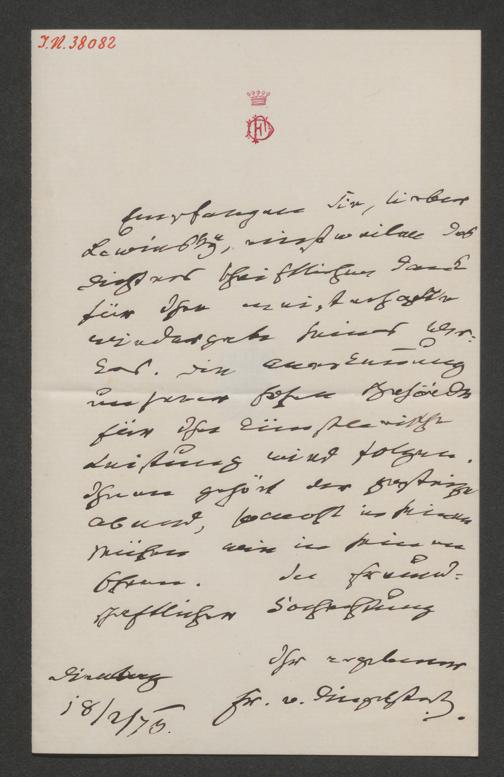 I.N. 38082
FD
Empfangen Sie, lieber
Lewinsky, einstweilen des
Dichters schriftlichen Dank
für Ihre meisterhafte
Wiedergabe seines Wer-
kes. Die Anerkennung
unserer hohen Behörde
für Ihre künstlerische
Leistung wird folgen.
Ihnen gehört der gestrige
Abend, sowohl in seinen
Mühen wie in seinen
Ehren. In freund-
schaftlicher Hochachtung
Ihr ergebener
Dienstag
Fr. v. Dingelstedt.
18/2/75.